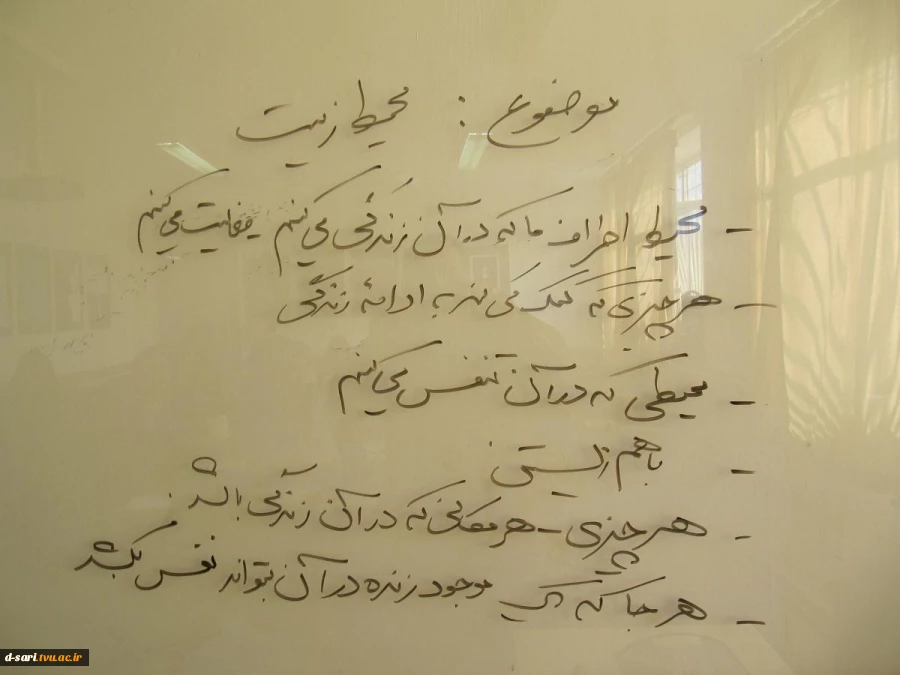 موضوع : محیط زیست
- محیط اطراف ما که در آن زندگی می کنیم - فعالیت می کنیم
- هر چیزی که کمک می کند به ادامهٔ زندگی
- محیطی که در آن تنفس می کنیم
- با هم زیستی
- هر چیزی - هر مکانی که در آن زندگی باشد.
- هر جا که یک موجود زنده در آن بتواند نفس بکشد
d-sari.tvu.ac.ir